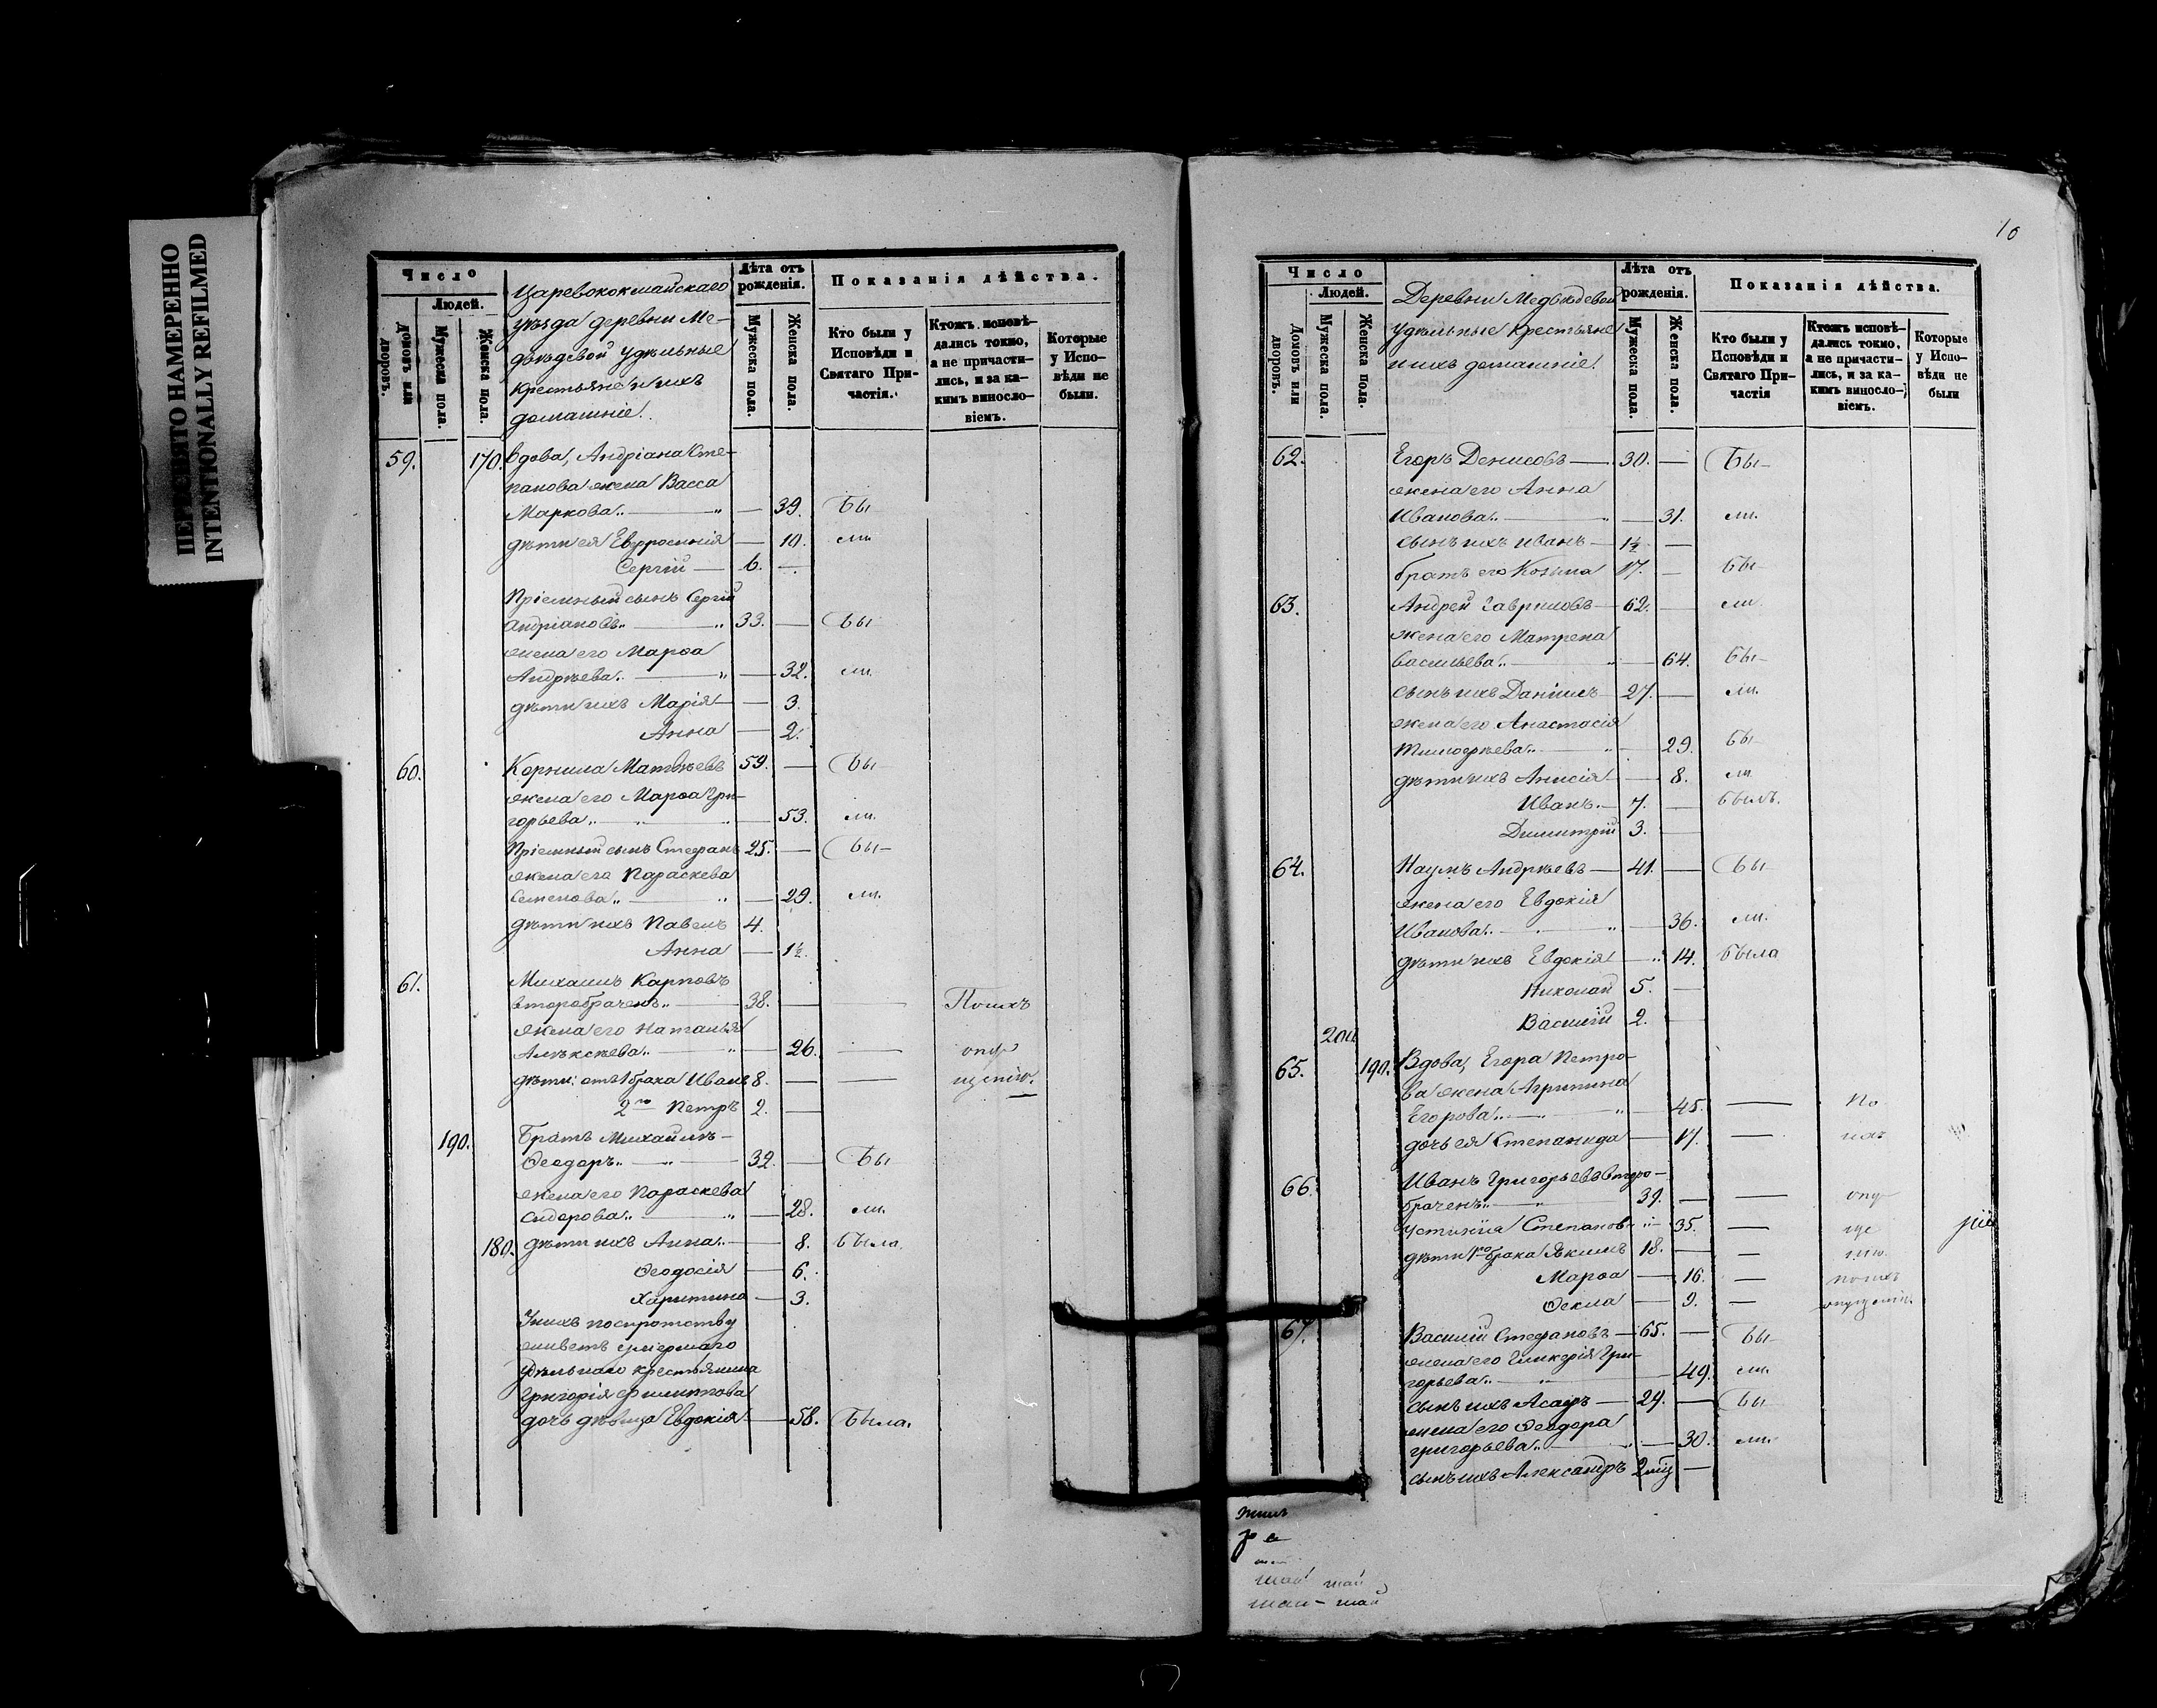 ПЕРЕСНЯТО НАМЕРЕННО
INTENTIONALLY REFILMED
Число
Людей.
Домовъ или дворовъ.
Мужеска пола.
Женска пола.
Царевококшайскаго
уѣзда деревни Ме-
двѣдевой Удѣльные
крестьяне и ихъ
домашніе.
Лѣта отъ рожденія.
Мужеска пола.
Женска пола.
Показанія дѣйства.
Кто были у Исповѣди и Святаго Причастія.
Ктожъ исповѣдались токмо, а не причастились, и за какимъ винословіемъ.
Которые у Исповѣди не были.
59. 170. Вдова, Андріана Сте-
панова жена Васса
Маркова 39. Бы
дѣти ея Евфросинія 10. ли
Сергій 6.
Пріемный сынъ Сергій
Андріановъ 33. Бы
жена его Марѳа
Андрѣева 32. ли.
дѣти ихъ Марія 3.
Анна 2.
60. Корнила Матвѣевъ 59. Бы
жена его Марѳа Гри-
горьева 53. ли.
Пріемный сынъ Стефанъ 25. Бы
жена его Параскева
Семенова 29. ли.
дѣти ихъ Павелъ 4.
Анна 1½.
61. Михаилъ Карповъ
второбраченъ 38. По ихъ
жена его Наталья
Алексѣева 26. опу
дѣти: отъ 1 брака Иванъ 8. щенію.
2го Петръ 2.
190. Братъ Михаиловъ
Ѳеодоръ 32. Бы
жена его Параскева
Сидорова 28. ли.
180. дѣти ихъ Анна 8. была.
Ѳеодосія 6.
Харитина 3.
У нихъ по сиротству
живетъ
Удѣльнаго крестьянина
Григорія Филиппова
дочь дѣвица Евдокія 58. Была.
10
Число
Людей.
Домовъ или дворовъ.
Мужеска пола.
Женска пола.
Деревни Медвѣдевой
Удѣльные Крестьяне
и ихъ домашніе.
Лѣта отъ рожденія.
Мужеска пола.
Женска пола.
Показанія дѣйства.
Кто были у Исповѣди и Святаго Причастія
Ктожъ исповѣдались токмо, а не причастились, и за какимъ винословіемъ.
Которые у Исповѣди не были
62. Егоръ Денисовъ 30. Бы
жена его Анна
Иванова 31. ли.
сынъ ихъ Иванъ 1½
братъ его Козьма 17. Бы
63. Андрей Гавриловъ 62. ли.
жена его Матрена
Васильева 64. Бы
сынъ ихъ Даніилъ 27. ли.
жена его Анастасія
Тимоѳѣева 29. Бы
дѣти ихъ Анисія 8. ли
Иванъ 7. былъ.
Димитрій 3.
64. Наумъ Андрѣевъ 41. Бы
жена его Евдокія
Иванова 36. ли.
дѣти ихъ Евдокія 14. Была
Николай 5.
Василій 2.
200
65. 190. Вдова, Егора Петро-
ва жена Агрипина
Егорова 45. По
дочь ея Степанида 17. ихъ
66. Иванъ Григорьевъ второ-
браченъ 39. опу
Устинія Степанов 35. ще
дѣти 1го брака Якимъ 18. нію.
Марѳа 16. по ихъ
Ѳекла 9. опущенію.
67. Василій Стефановъ 65. Бы
жена его Гликерія Гри-
горьева 49. ли.
сынъ ихъ Асафъ 29. Бы
жена его Ѳеодора
Григорьева 30. ли.
сынъ ихъ Александръ 2 мц